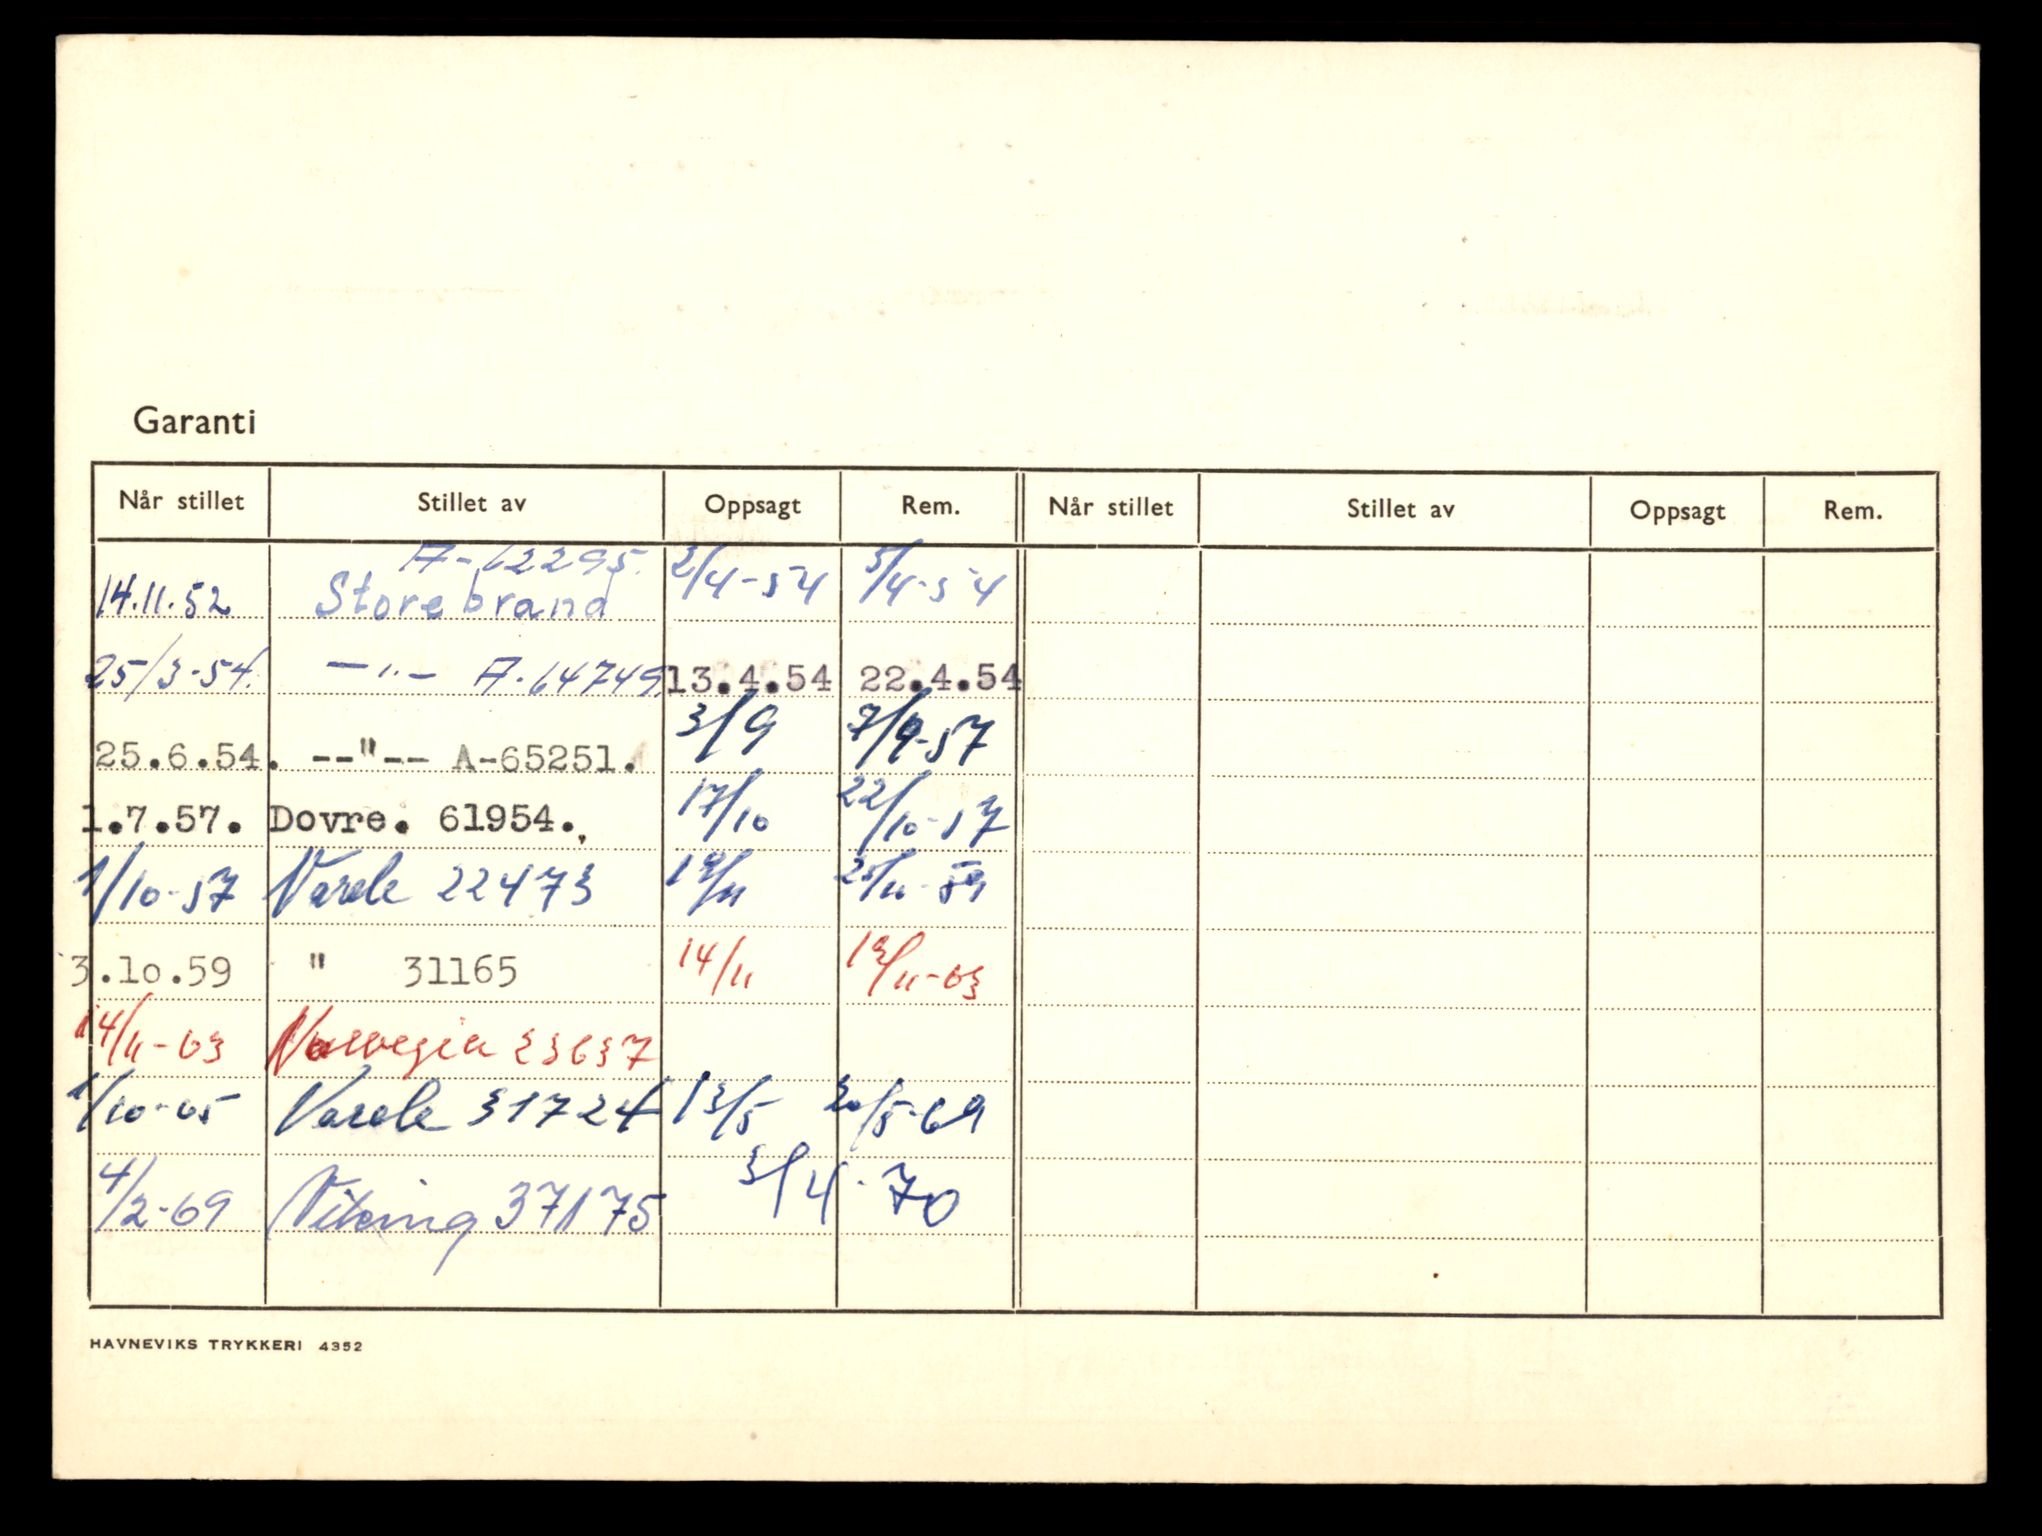 Garanti
Når stillet Stillet av Oppsagt Rem. Når stillet Stillet av Oppsagt Rem.
A-62295.
14.11.52 Storebrand 2/4-54 5/4-54
25/3-54. —"— A-64749 13.4.54 22.4.54
25.6.54. --"-- A-65251. 3/9 7/9-57
1.7.57. Dovre. 61954. 17/10 22/10-57
1/10-57 Varde 22473 19/11 25/11-59
3.10.59 " 31165 14/11 19/11-63
14/11-63 Norvegia 23637
1/10-65 Varde 31724 13/5 20/5-69
4/2-69 Viking 37175 3/4-70
HAVNEVIKS TRYKKERI 4352